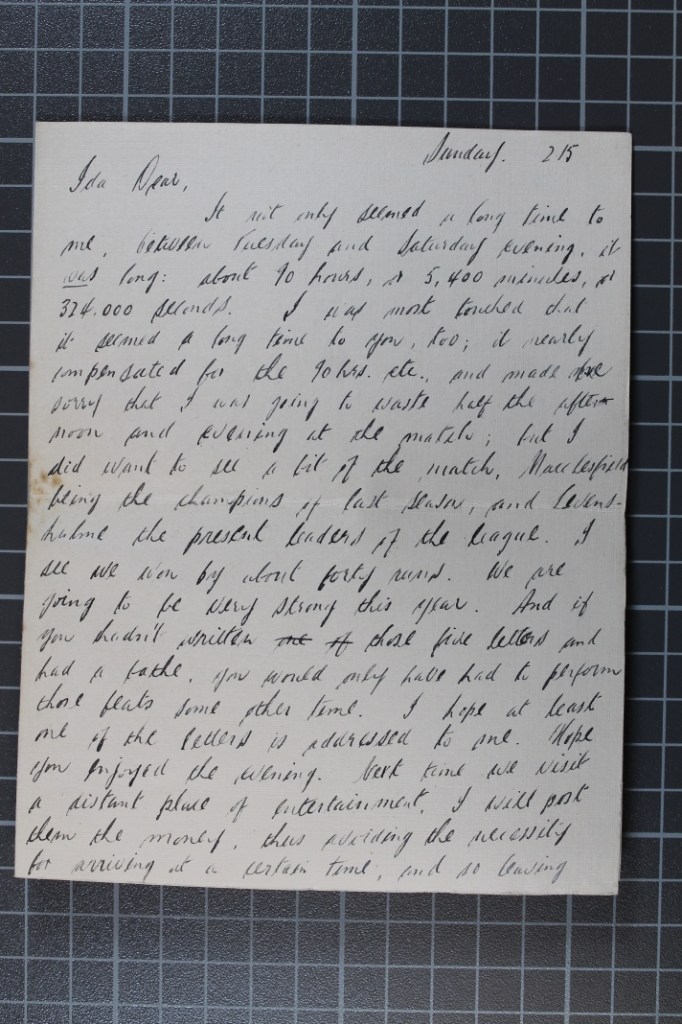 Sunday. 215
Ida Dear,
It not only seemed a long time to
me, between Tuesday and Saturday evening, it
was long: about 90 hours, or 5,400 minutes, or
324.000 seconds. I was most touched that
it seemed a long time to you, too; it nearly
compensated for the 90 hrs. etc., and made me
sorry that I was going to waste half the after-
noon and evening at the match; but I
did want to see a bit of the match, Macclesfield
being the champions of last season, and Levens-
hulme the present leaders of the league. I
see we won by about forty runs. We are
going to be very strong this year. And if
you hadn't written one of those five letters and
had a bathe, you would only have had to perform
those feats some other time. I hope at least
one of the letters is addressed to me. Hope
you enjoyed the evening. Next time we visit
a distant place of entertainment, I will post
them the money, thus avoiding the necessity
for arriving at a certain time, and so leaving